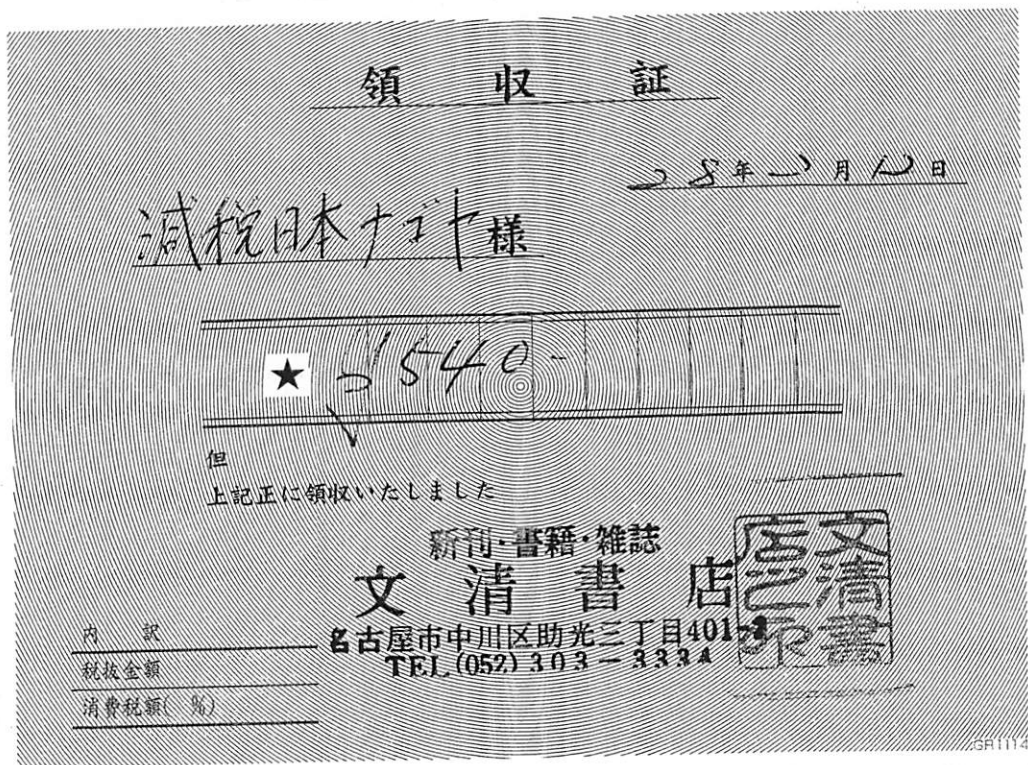 領収証
28年 月 日
減税日本ナゴヤ様
★ 540-
但
上記正に領収いたしました
新刊・書籍・雑誌
文清書店
名古屋市中川区助光三丁目401
TEL (052) 303-3334
文清書店之印
内訳
税抜金額
消費税額( %)
GR1114